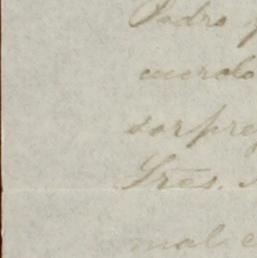 Padro
cuerdo
sorpre
Sres.
mal e